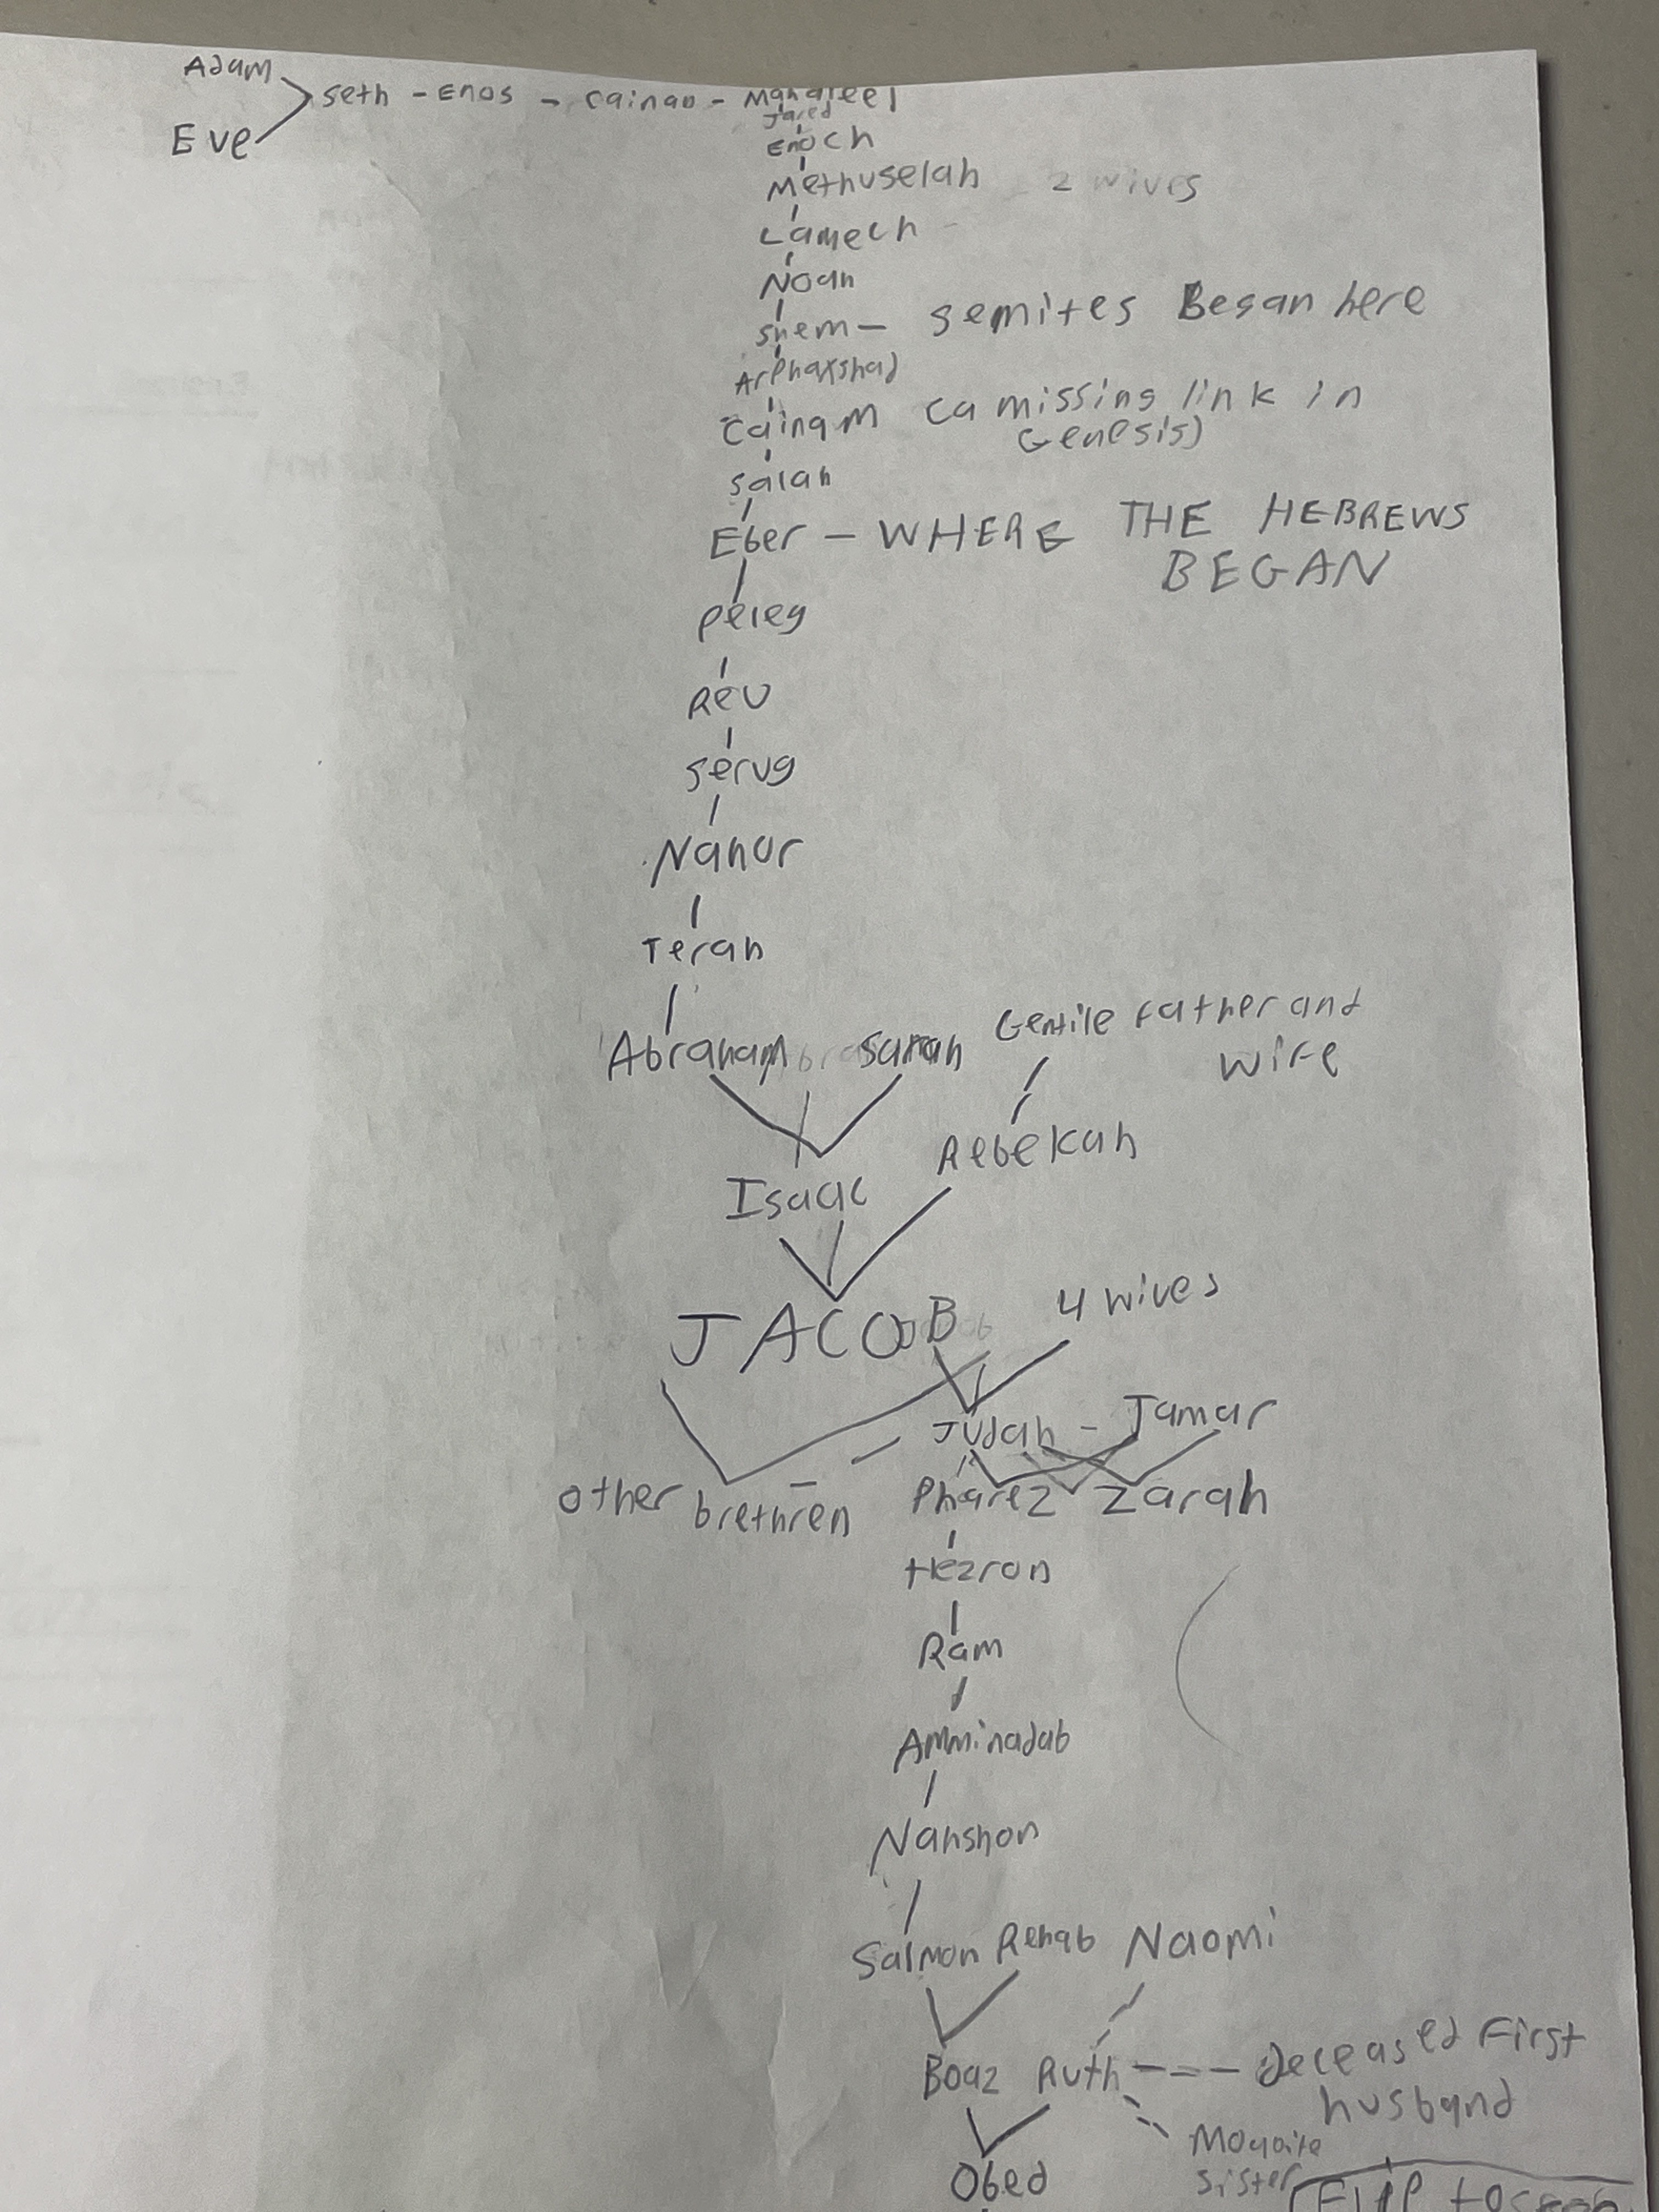 Adam
Eve
Seth - Enos - Cainan - Mahaleel
Jared
Enoch
Methuselah 2 wives
Lamech -
Noah
Shem — Semites Began here
Arphaxshad
Cainam (a missing link in
Genesis)
Salah
Eber — WHERE THE HEBREWS
BEGAN
Peleg
Reu
Serug
Nahor
Terah
Gentile Father and
wife
Abraham Sarah
Rebekah
Isaac
4 wives
JACOB
Judah - Tamar
other brethren Pharez Zarah
Hezron
Ram
Amminadab
Nahshon
Salmon Rehab Naomi
Boaz Ruth --- Deceased First
husband
Moabite
sister
Obed
Flip to